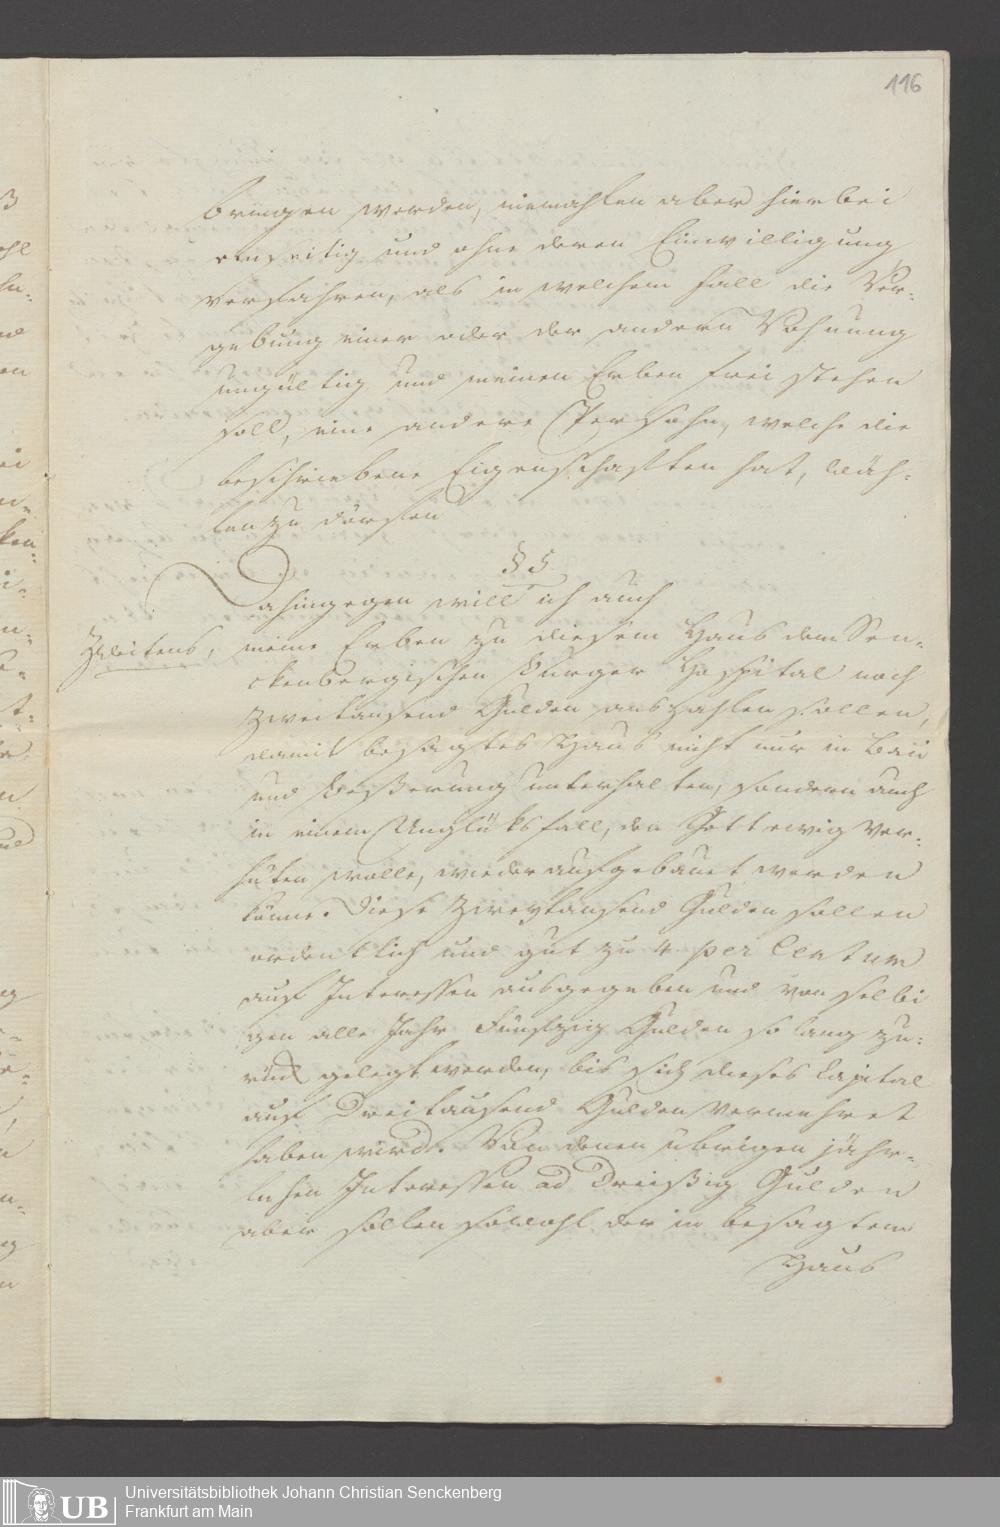 116
bringen werden, niemahlen aber hierbei
einseitig und ohne deren Einwilligung
verfahren, als in welchem Fall die Ver-
gebung einer oder der andern Wohnung
ungültig und meinen Erben frei stehen
soll, eine andere Persohn, welche die
beschriebene Eigenschafften hat, wäh-
len zu dörffen
§ 5
Dahingegen will ich auch
Zweitens,
meine Erben zu diesem Haus dem Sen-
ckenbergischen Burger Hospital noch
zweitausend Gulden auszahlen sollen,
damit besagtes Haus nicht nur in Bau
und Beßerung unterhalten, sondern auch
in einem Unglüksfall, den Gott ewig ver-
hüten wolle, wieder aufgebauet werden
könne. Diese Zweytausend Gulden sollen
ordentlich und gut zu 4 per Centum
auf Interessen ausgegeben und von selbi
gen alle Jahr Funfzig Gulden so lang zu-
rück gelegt werden, bis sich dieses Capital
auf Dreitausend Gulden vermehret
haben wird. Von denen übrigen jähr-
lichen Interessen ad Dreißig Gulden
aber sollen sowohl der in besagtem
Haus
UB
Universitätsbibliothek Johann Christian Senckenberg
Frankfurt am Main